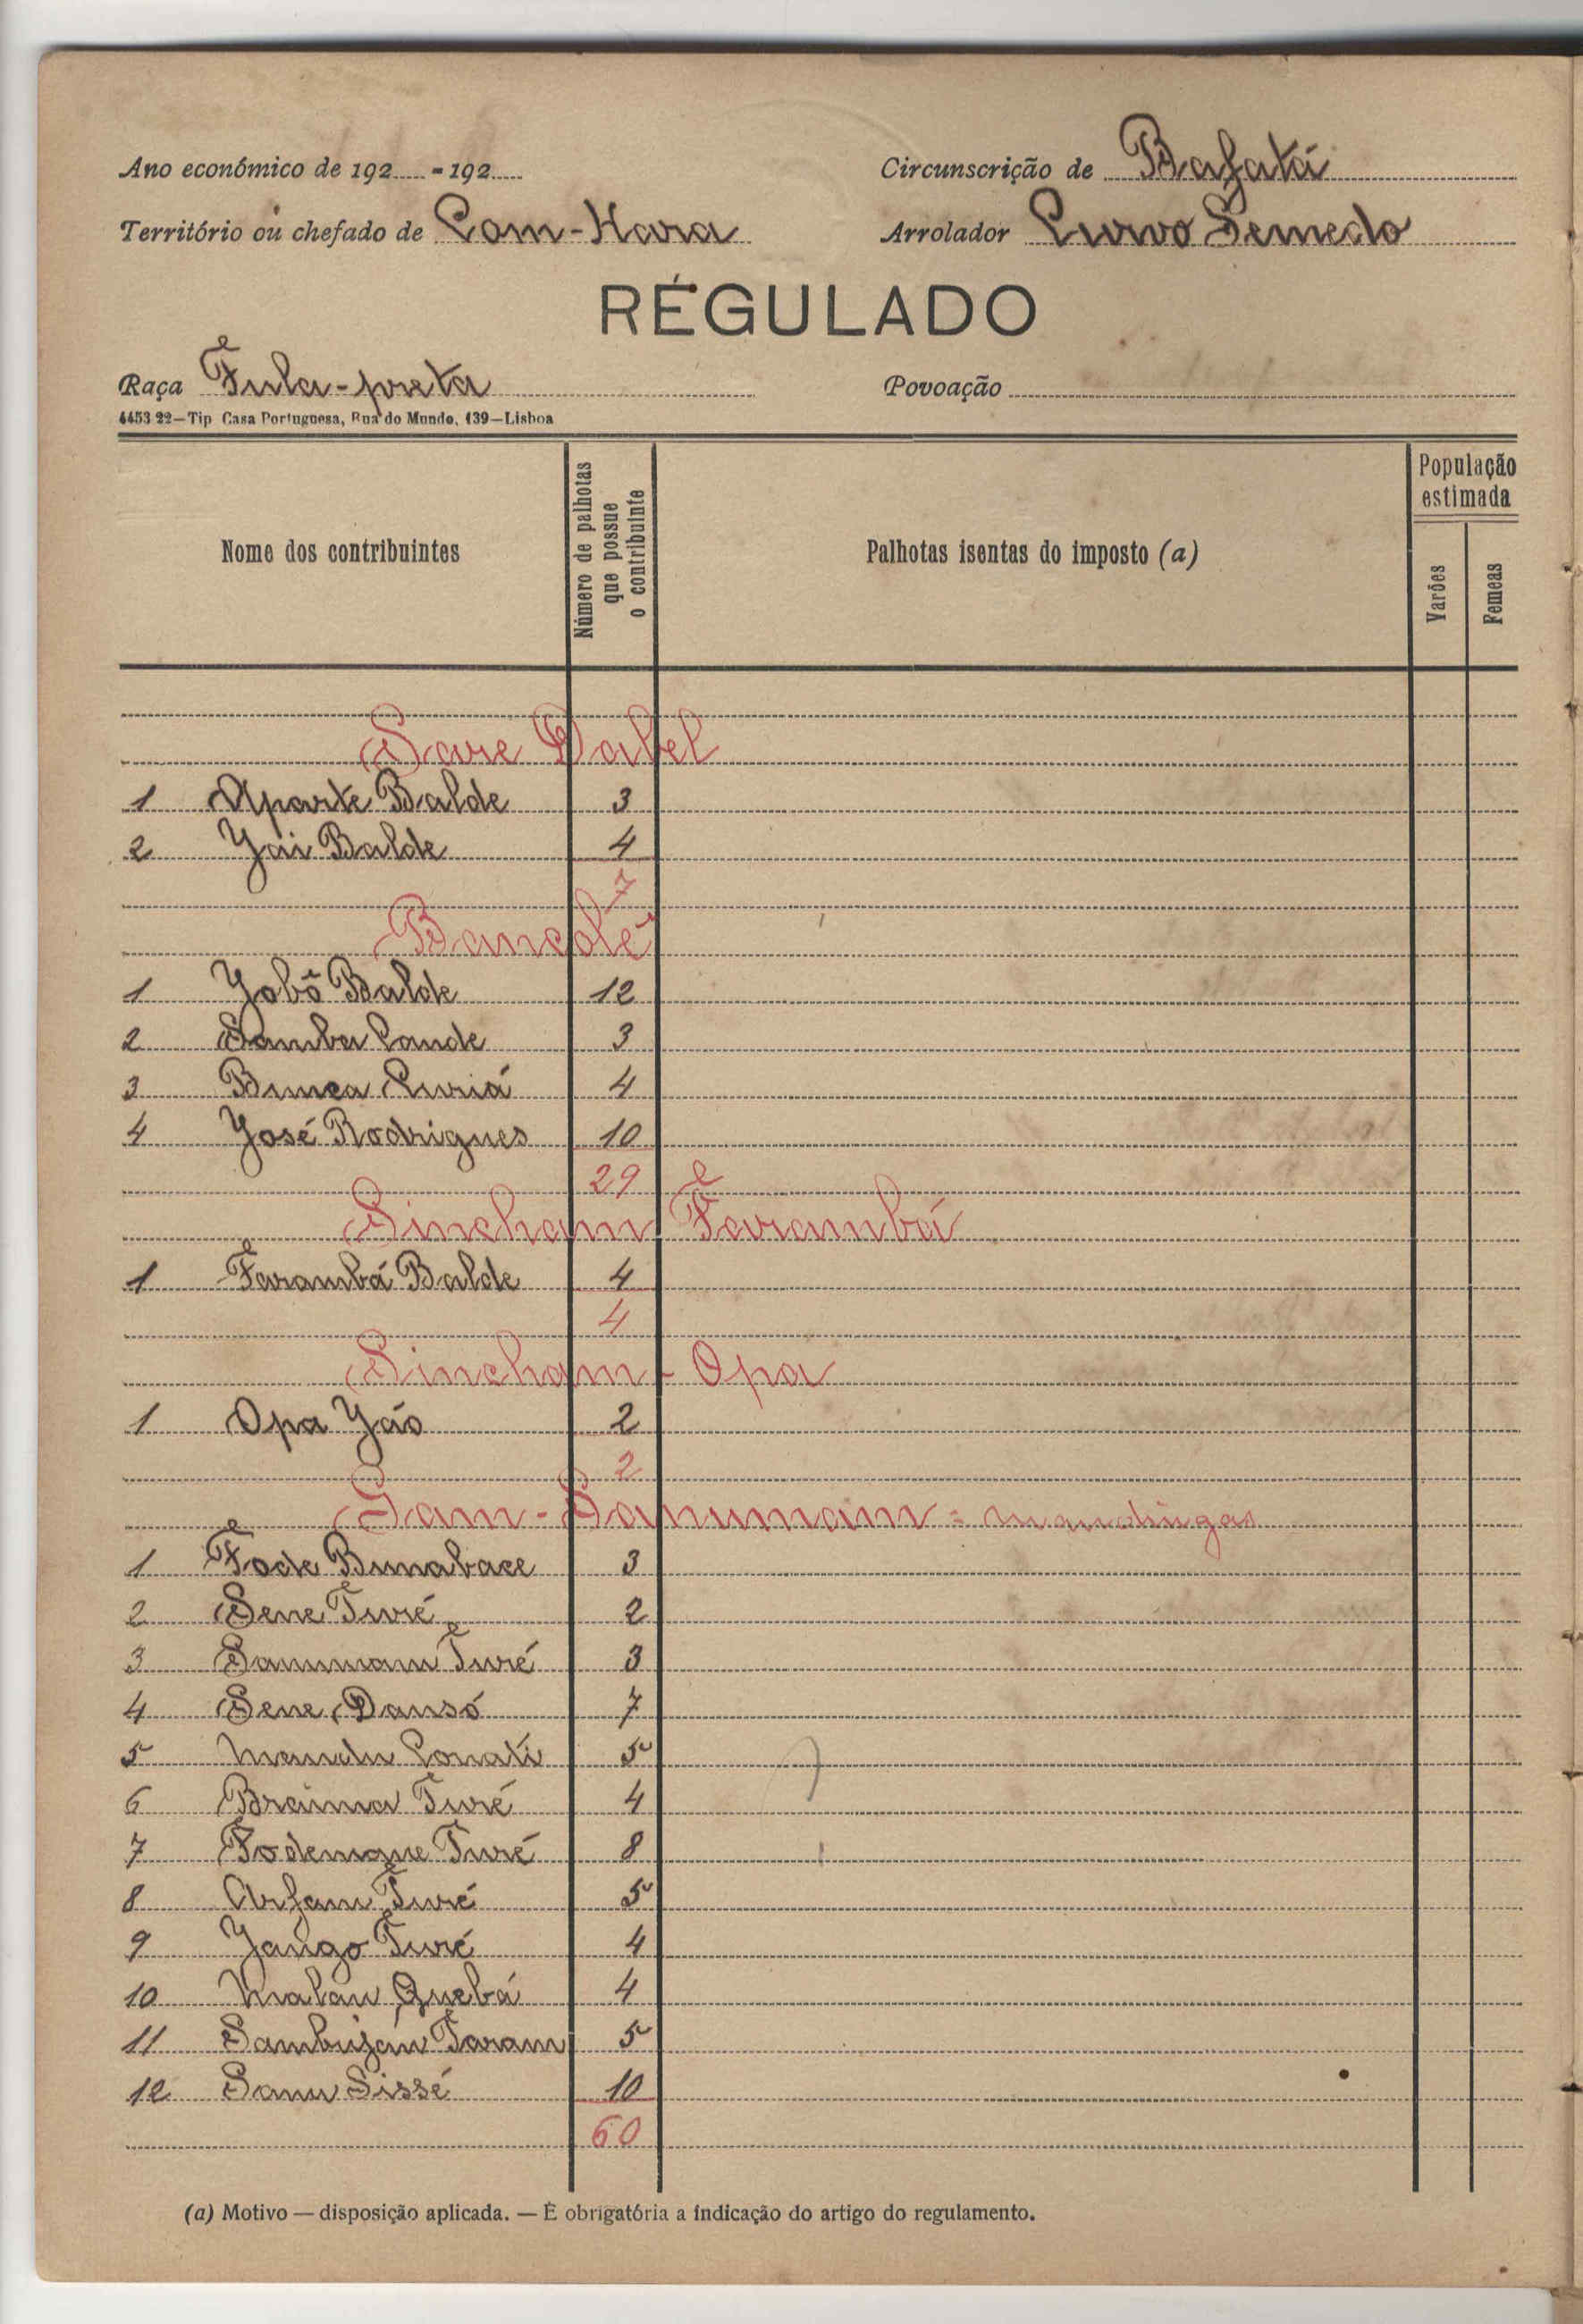 Ano económico de 192..... - 192..... Circunscrição de Bafatá
Território ou chefado de Com-Hara Arrolador Curvo Semedo
REGULADO
Raça Fula-preta Povoação
4453 22—Tip Casa Portuguesa, Rua do Mundo, 139—Lisboa
Nome dos contribuintes
Número de palhotas que possue o contribuinte
Palhotas isentas do imposto (a)
População estimada
Varões
Femeas
Sare Dabel
1 Aparte Balde 3
2 Yai Balde 4
7
Bancolé
1 Yobô Balde 12
2 Samba Cande 3
3 Bunca Curiá 4
4 José Rodrigues 10
29
Sincham Farambá
1 Farambá Balde 4
4
Sincham - Opa
1 Opa Yáo 2
2
Gam - = mandingas
1 Fode 3
2 Sene Turé 2
3 Turé 3
4 Sene Dansó 7
5 5
6 Braima Turé 4
7 Turé 8
8 Arfam Turé 5
9 Yango Turé 4
10 Malan Quebá 4
11 5
12 Sanu Sissé 10
60
(a) Motivo — disposição aplicada. — É obrigatória a indicação do artigo do regulamento.